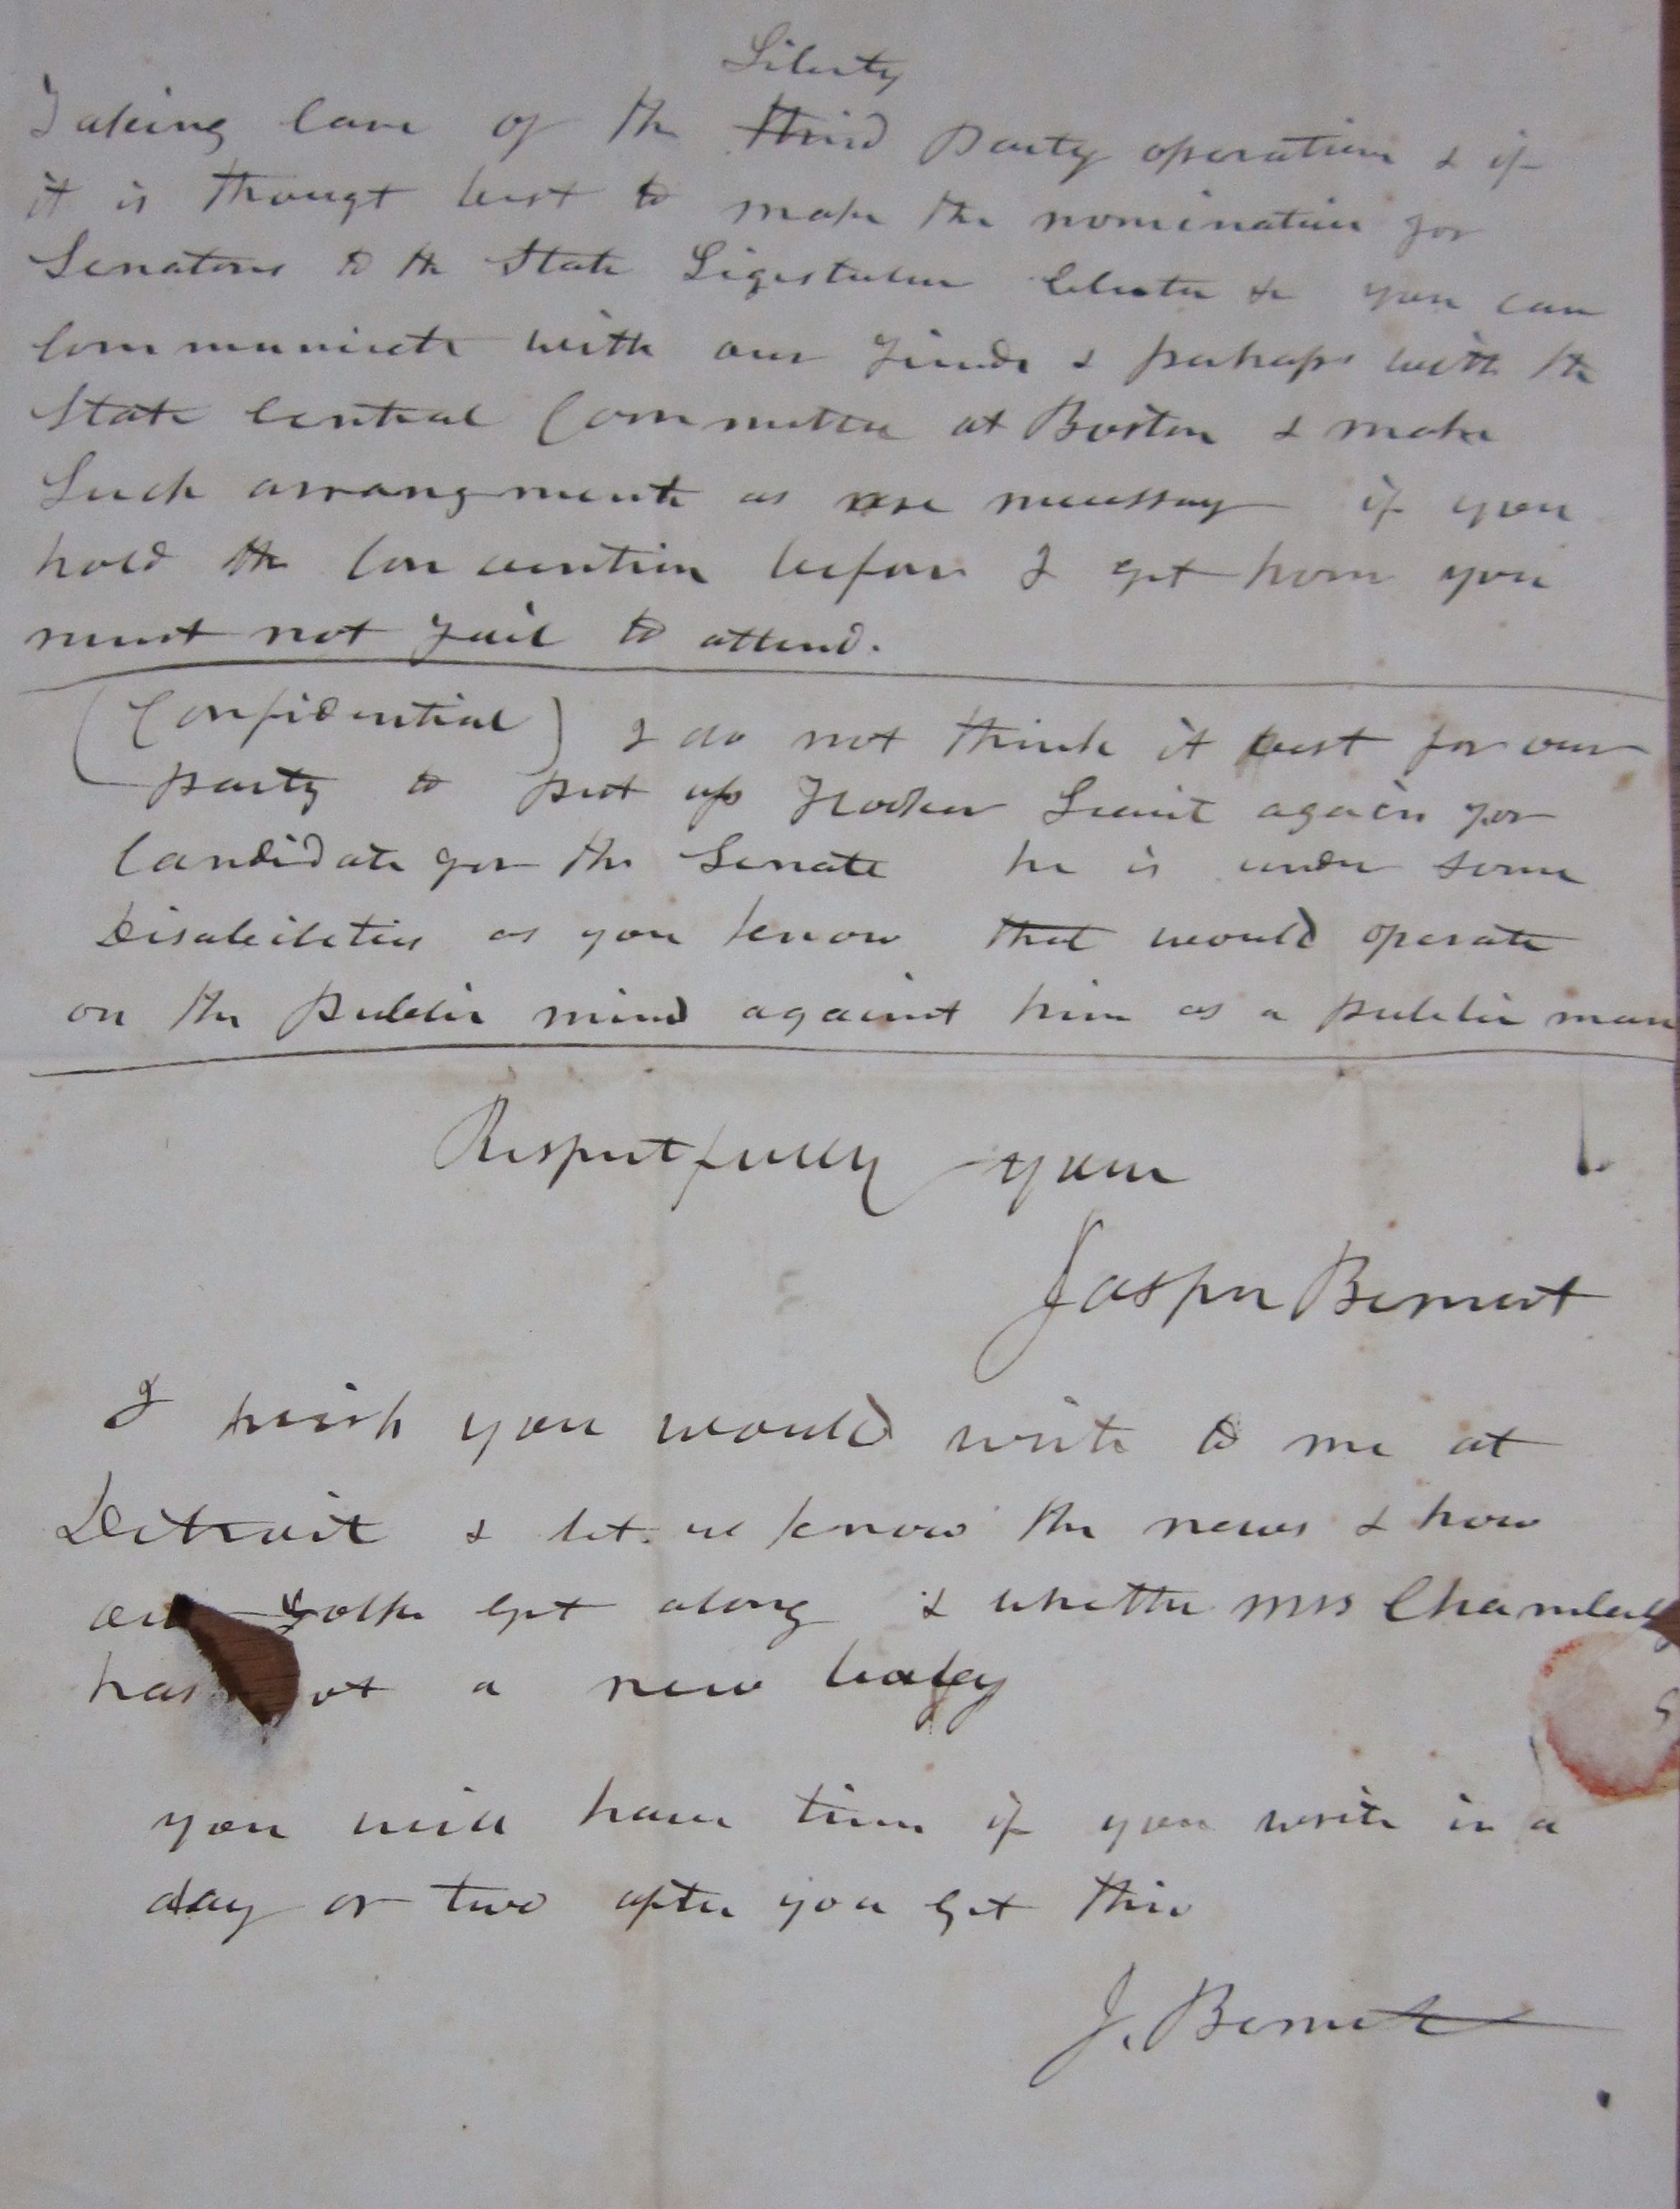 Liberty
Taking Care of the third Party operation & if
it is thougt best to make the nomination for
Senators to the State Ligestuture & you can
Communicate with our frinds & perhaps with the
State Central Committee at Boston & make
Such arrangments as are necessary if you
hold the Convention before I get home you
must not fail to attend.
(Confidential) I do not think it best for our
party to put up Hooker again for
Candidate for the Senate he is under some
Disabilities as you know that would operate
on the public mind against him as a public man
Respectfully yours
Jasper Bement
I wish you would write to me at
Detroit & let us know the news & how
folks get along & whether Mrs
has a new baby
you will have time if you write in a
day or two after you get this
J. Bement